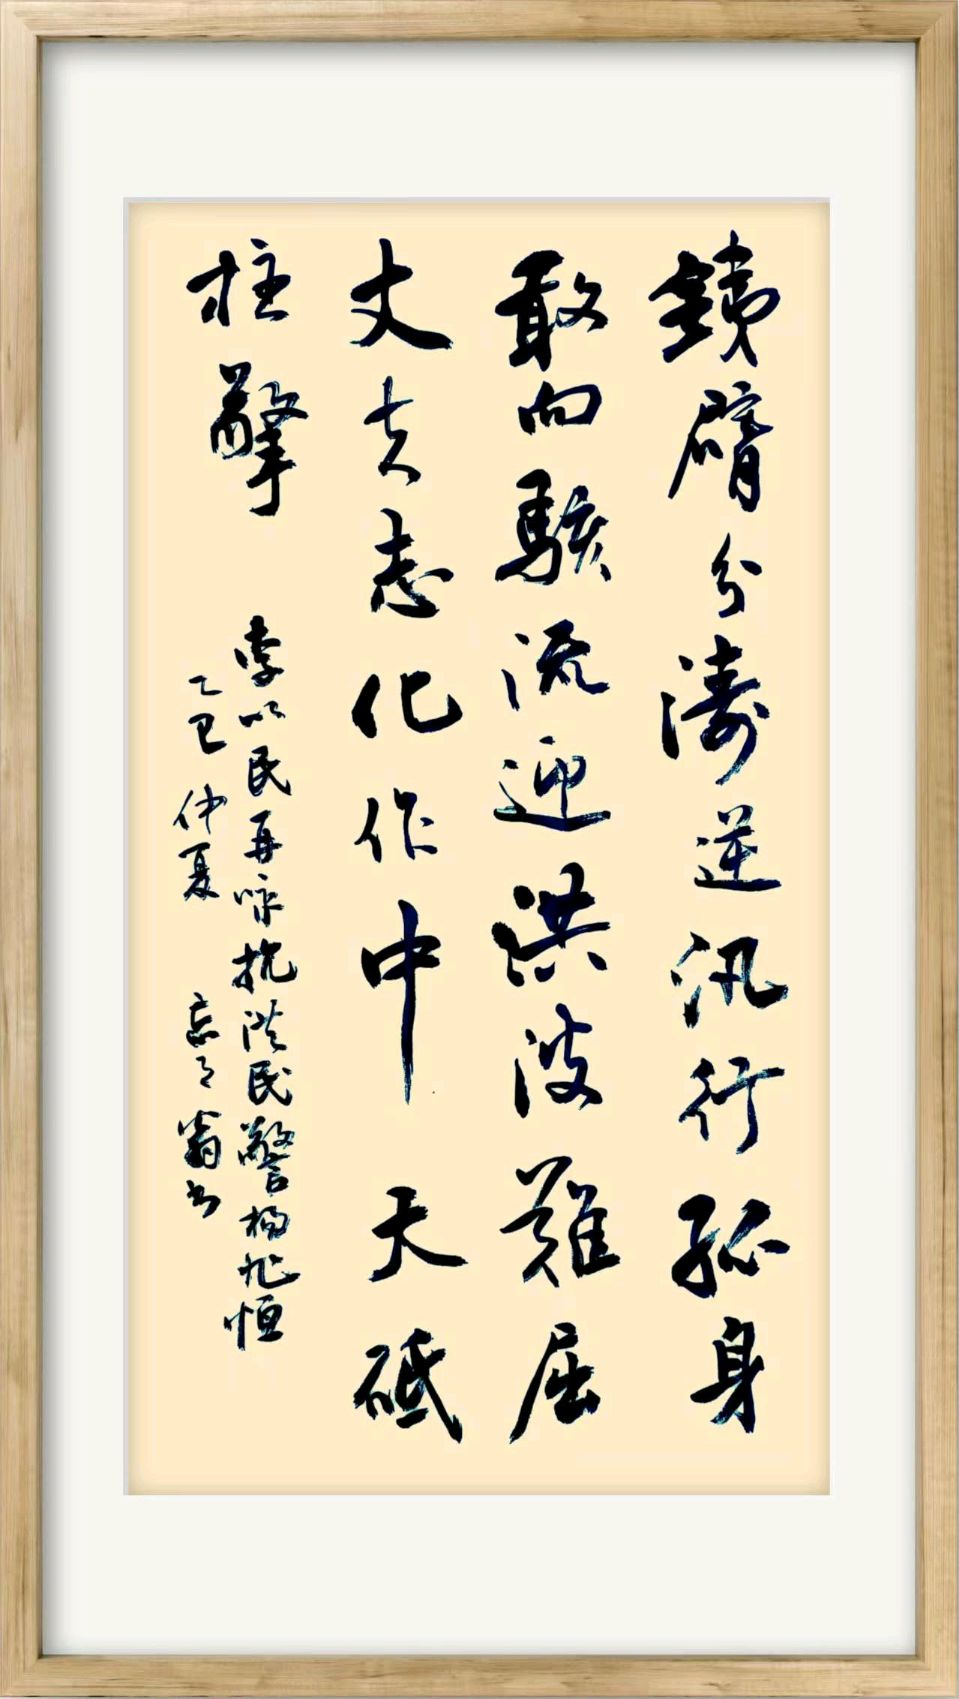 銕臂分濤逆汛行孤身
敢向駭流迎洪波難屈
丈夫志化作中天砥
柱擎
李以民再咏抗洪民警杨旭恒
乙巳仲夏 忘翁书